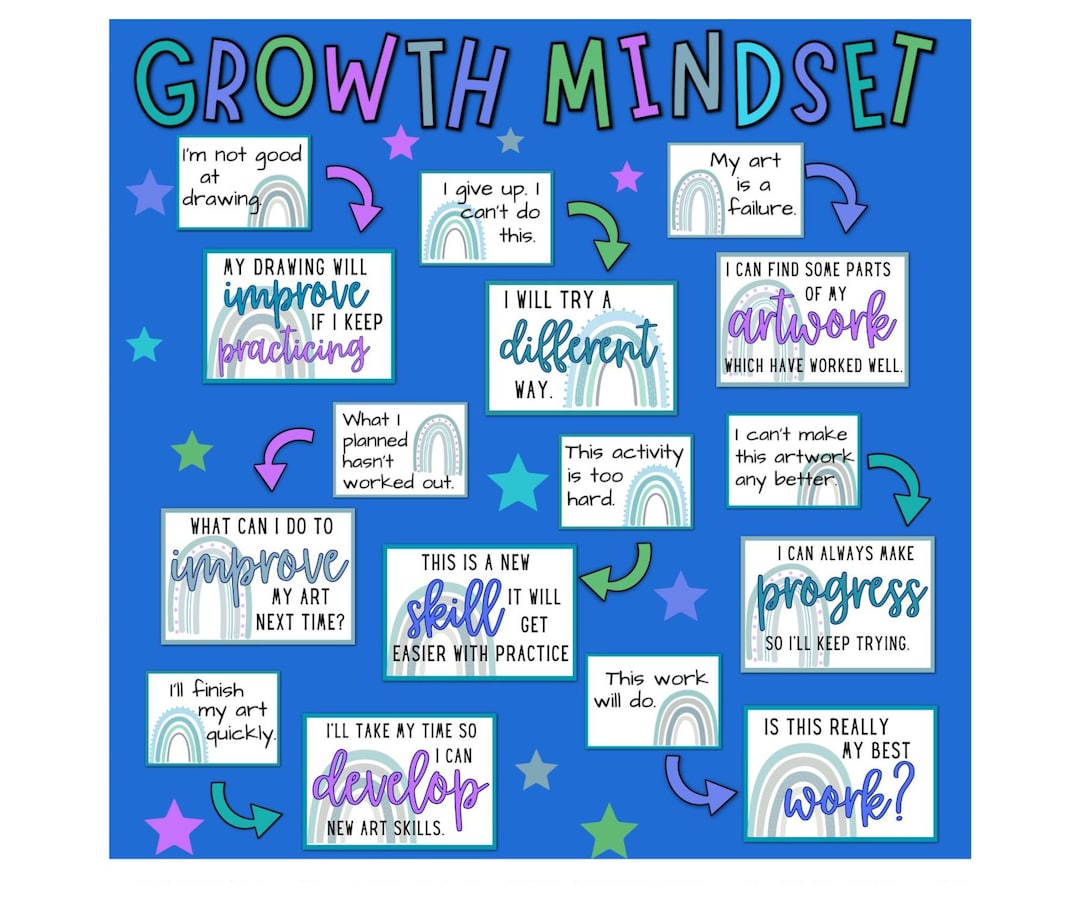 GROWTH MINDSET
I'm not good
at
drawing.
MY DRAWING WILL
improve
IF I KEEP
practicing
I give up. I
can't do
this.
I WILL TRY A
different
WAY.
My art
is a
failure.
I CAN FIND SOME PARTS
OF MY
artwork
WHICH HAVE WORKED WELL.
What I
planned
hasn't
worked out.
WHAT CAN I DO TO
improve
MY ART
NEXT TIME?
This activity
is too
hard.
THIS IS A NEW
skill IT WILL
GET
EASIER WITH PRACTICE
I can't make
this artwork
any better.
I CAN ALWAYS MAKE
progress
SO I'LL KEEP TRYING.
I'll finish
my art
quickly.
I'LL TAKE MY TIME SO
I CAN
develop
NEW ART SKILLS.
This work
will do.
IS THIS REALLY
MY BEST
work?